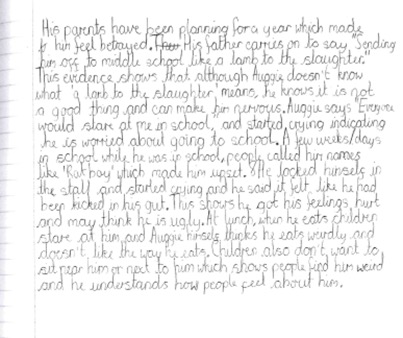 His parents have been planning for a year which made
him feel betrayed. His father carries on to say, "Sending
him off to middle school like a lamb to the slaughter."
This evidence shows that although Auggie doesn't know
what 'a lamb to the slaughter' means, he knows it is not
a good thing and can make him nervous. Auggie says "Everyone
would stare at me in school," and started crying indicating
he is worried about going to school. A few weeks/days
in school while he was in school, people called him names
like 'Rat boy' which made him upset. He locked himsels in
the stall and started crying and he said it felt like he had
been kicked in his gut. This shows he got his feelings hurt
and may think he is ugly. At lunch, when he eats children
stare at him and Auggie himsels thinks he eats weirdly and
doesn't like the way he eats. Children also don't want to
sit near him or next to him which shows people find him weird
and he understands how people feel about him.